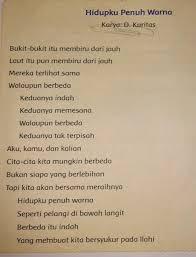 Hidupku Penuh Warna
Karya: D. Karitas
Bukit-bukit itu membiru dari jauh
Laut itu pun membiru dari jauh
Mereka terlihat sama
Walaupun berbeda
Keduanya indah
Keduanya memesona
Walaupun berbeda
Keduanya tak terpisah
Aku, kamu, dan kalian
Cita-cita kita mungkin berbeda
Bukan siapa yang berlebihan
Tapi kita akan bersama meraihnya
Hidupku penuh warna
Seperti pelangi di bawah langit
Berbeda itu indah
Yang membuat kita bersyukur pada Ilahi